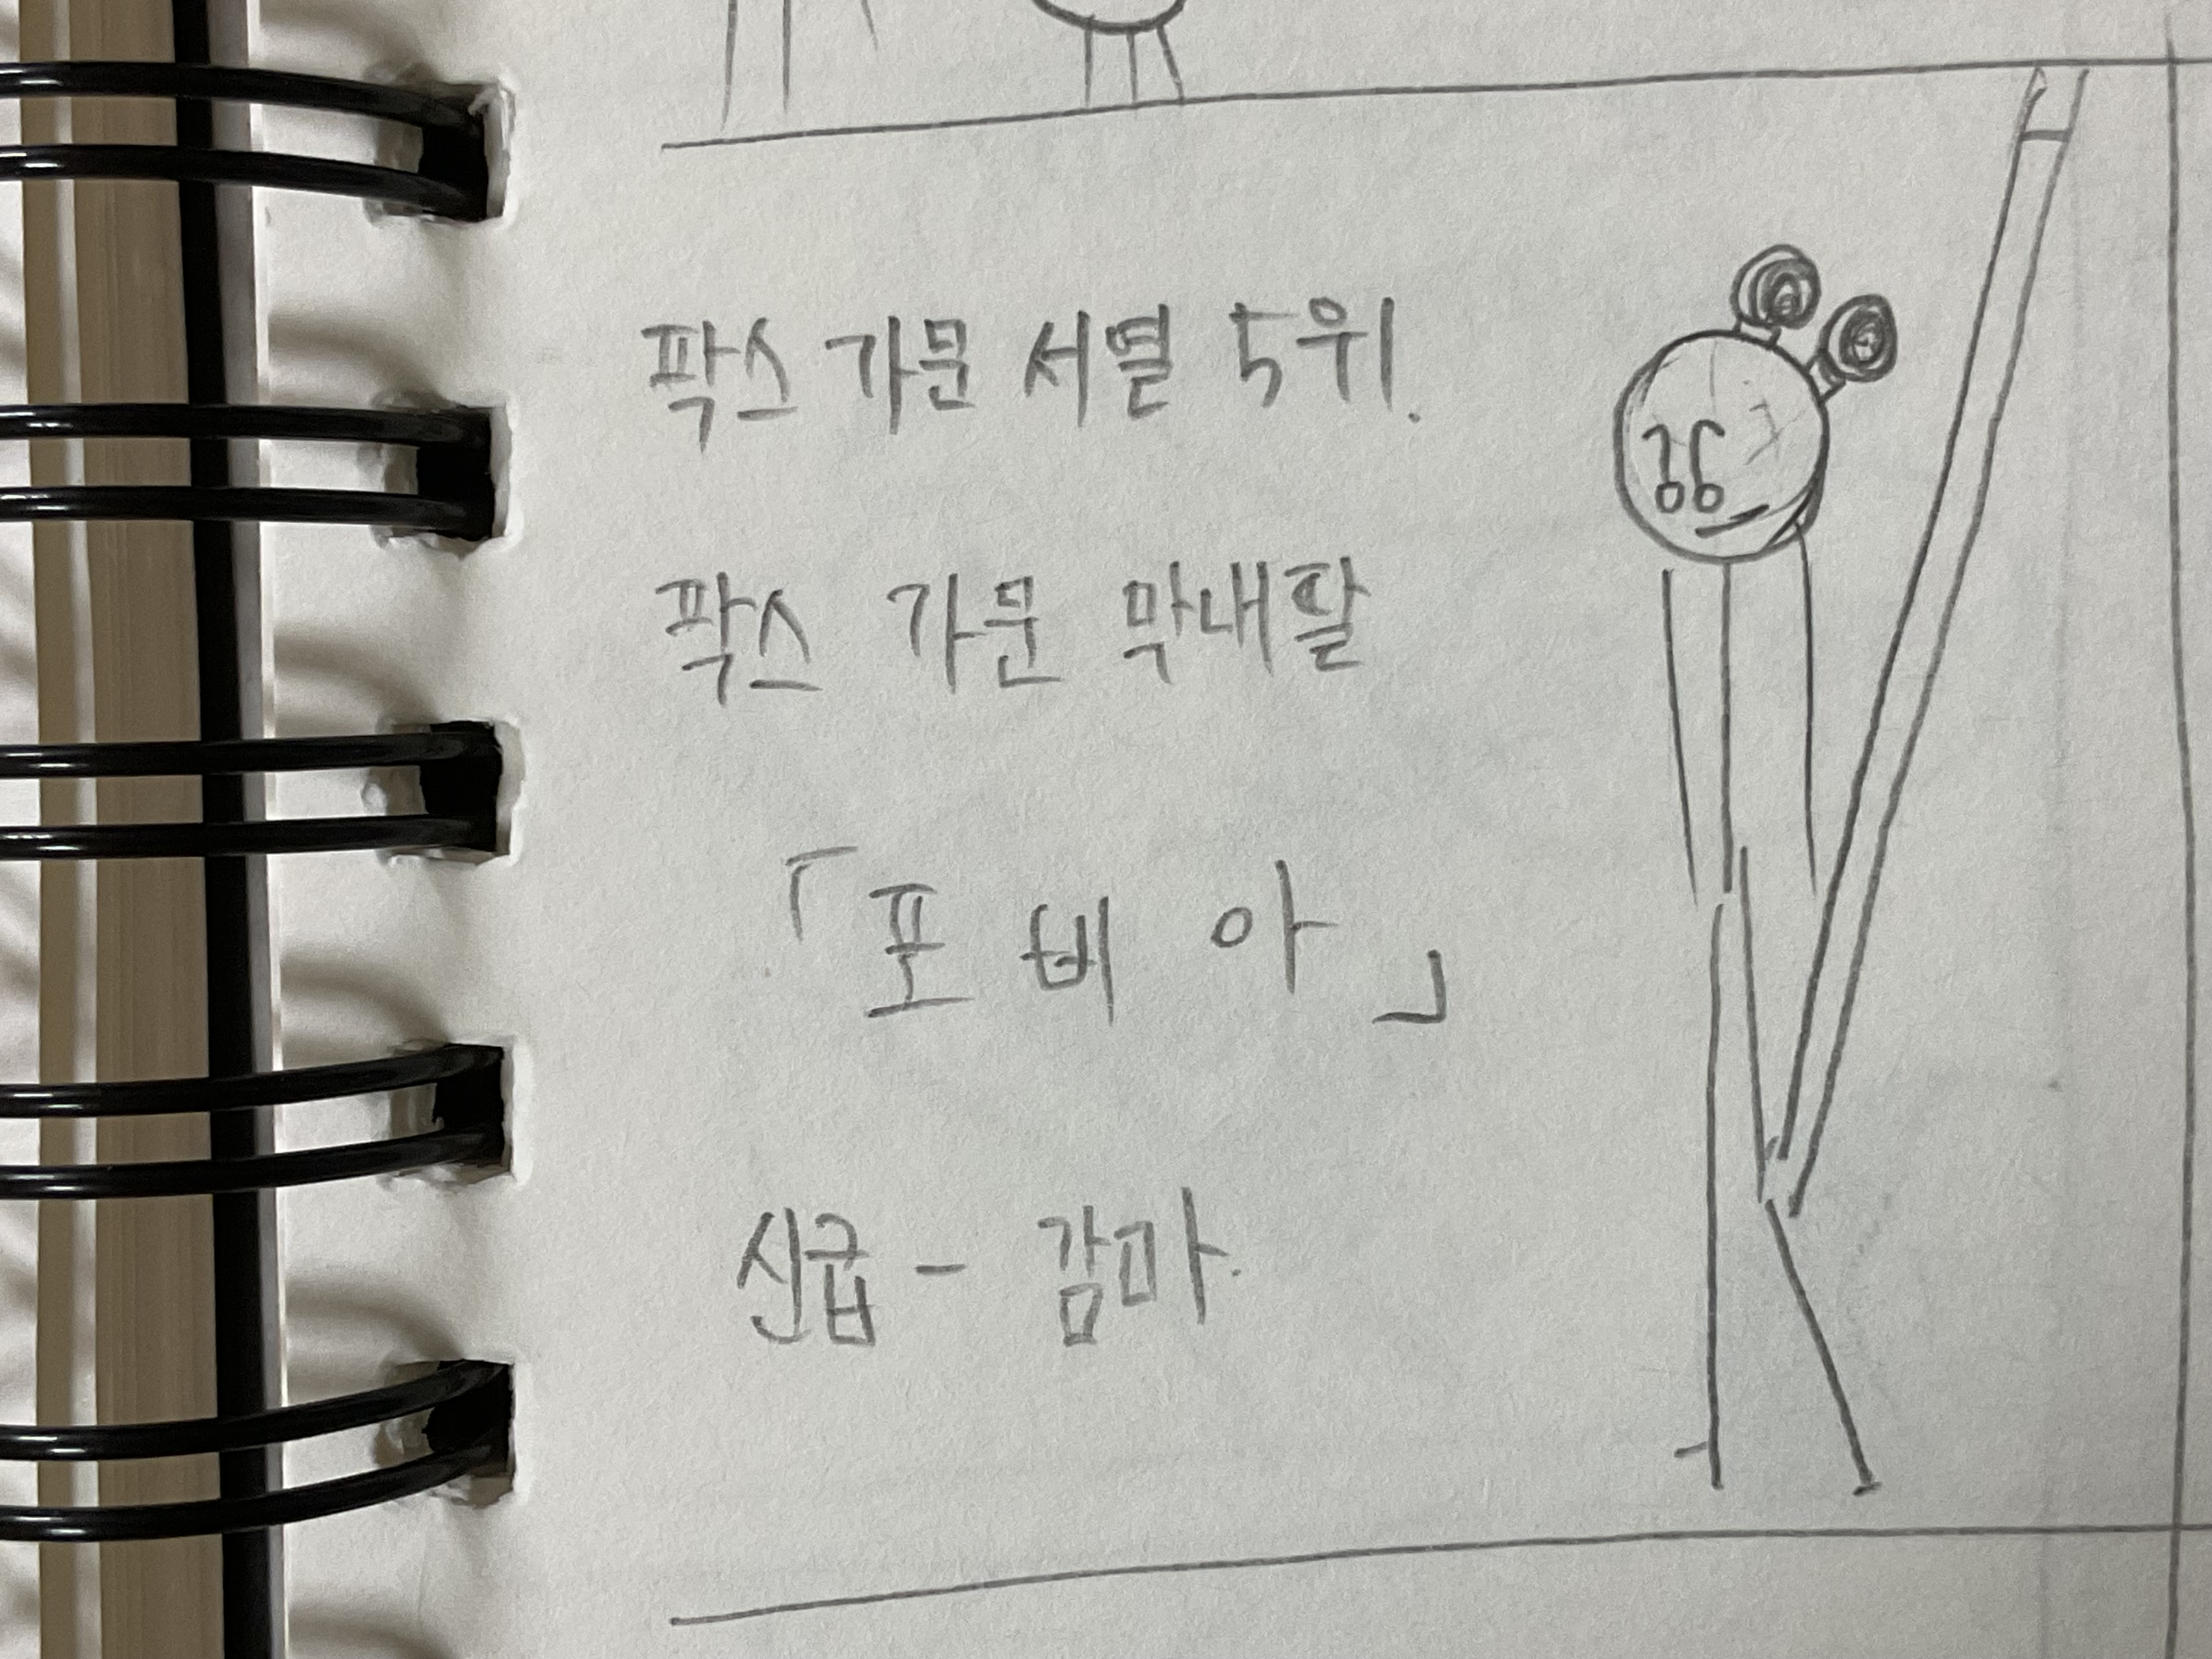 팍스 가문 서열 5위.
팍스 가문 막내딸
「포비아」
신급 - 감마.